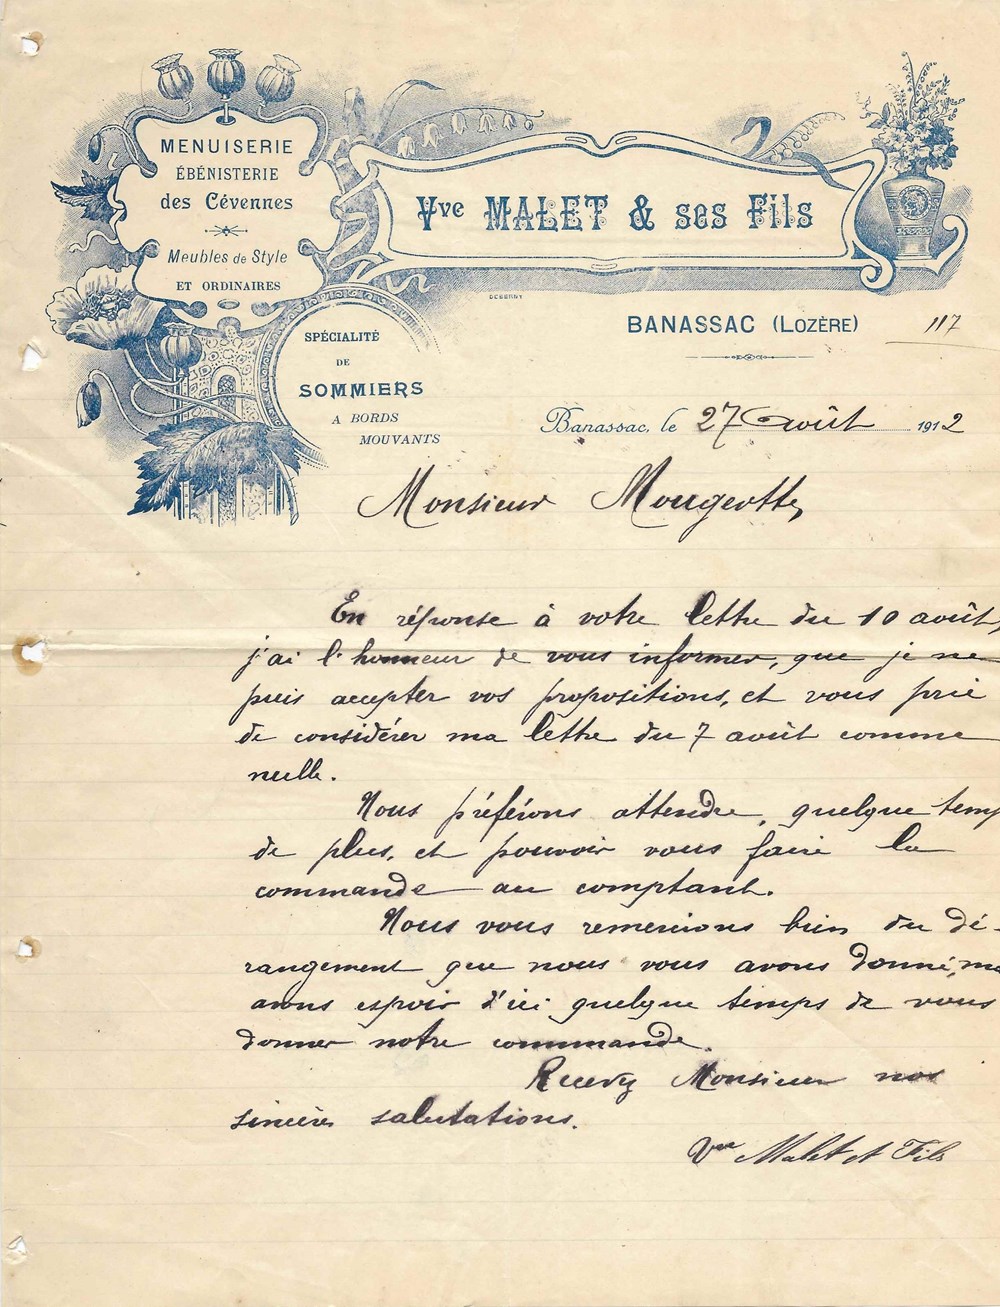 MENUISERIE
ÉBÉNISTERIE
des Cévennes
Meubles de Style
ET ORDINAIRES
Vve MALET & ses Fils
DEBERNY
SPÉCIALITÉ
DE
SOMMIERS
A BORDS
MOUVANTS
BANASSAC (LOZÈRE)
117
Banassac, le 27 Août 1912
Monsieur Mougeotte,
En réponse à votre lettre du 10 août,
j'ai l'honneur de vous informer, que je ne
puis accepter vos propositions, et vous prie
de considérer ma lettre du 7 août comme
nulle.
Nous préférons attendre, quelque temps
de plus, et pouvoir vous faire la
commande au comptant.
Nous vous remercions bien du dé-
rangement que nous vous avons donné,
avons espoir d'ici quelque temps de vous
donner notre commande.
Recevez Monsieur nos
sincères salutations.
Vve Malet et Fils